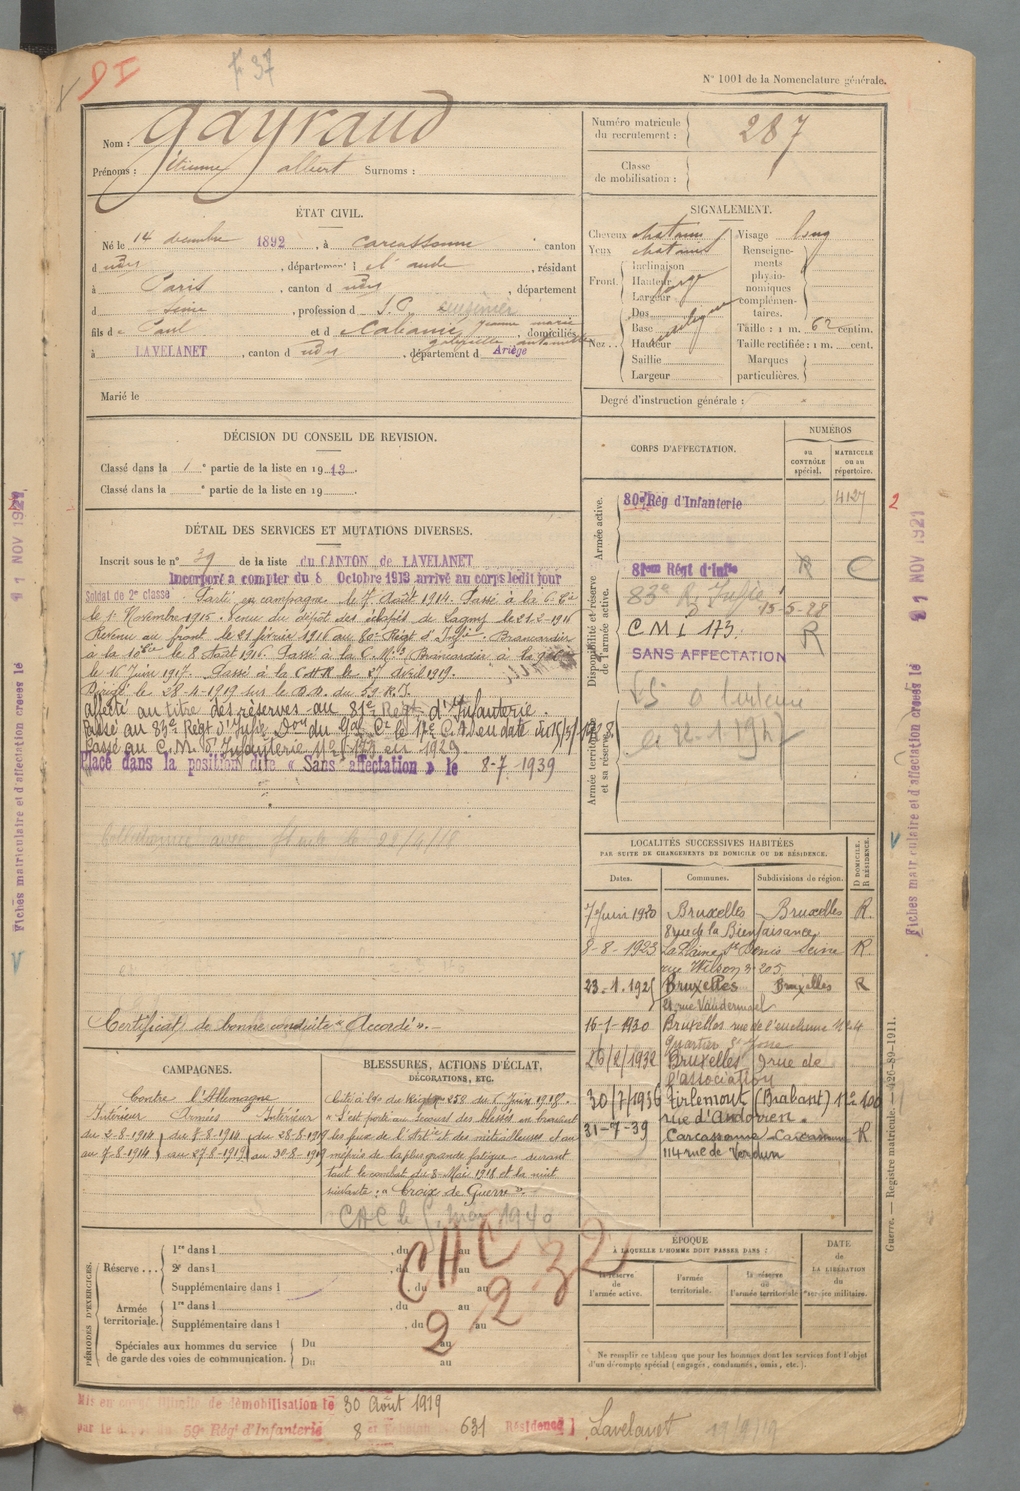 DI
F 37
N° 1001 de la Nomenclature générale.
Nom : Gayraud
Prénoms : Etienne albert Surnoms :
Numéro matricule du recrutement : 287
Classe de mobilisation :
ÉTAT CIVIL.
Né le 14 decembre 1892, à Carcassonne canton
d udy, département d l'aude, résidant
à Paris, canton d udy, département
d Seine, profession d S.P. ingénieur
fils de Paul et d Cabanie jeanne marie
gabrielle antoinette, domiciliés
à LAVELANET, canton d udy, département d Ariège
Marié le
SIGNALEMENT.
Cheveux chatains
Yeux chatains
Front. Inclinaison
Hauteur large
Largeur
Nez .. Dos
Base
Hauteur
Saillie
Largeur
Visage long
Renseignements physionomiques complémentaires.
Taille : 1 m. 62 centim.
Taille rectifiée : 1 m. cent.
Marques particulières.
Degré d'instruction générale :
DÉCISION DU CONSEIL DE REVISION.
Classé dans la 1e partie de la liste en 1913.
Classé dans la e partie de la liste en 19
CORPS D'AFFECTATION.
NUMÉROS
au CONTRÔLE spécial.
MATRICULE ou au répertoire.
Armée active.
80e Rég d'Infanterie 4127
Disponibilité et réserve de l'armée active.
81eme Régt d'Infie R C
83e R. Infie 15-5-28
C M I 173. R
SANS AFFECTATION
Armée territoriale et sa réserve.
le 22-1-1947
DÉTAIL DES SERVICES ET MUTATIONS DIVERSES.
Inscrit sous le n° 39 de la liste du CANTON de LAVELANET
Incorporé à compter du 8 Octobre 1913 arrivé au corps ledit jour
Soldat de 2e classe Parti en campagne le 7 Août 1914. Passé à la 6e Cie
le 1er Novembre 1915. Venu du dépôt des éclopés de Lagny le 21-2-1916
Revenu au front le 21 février 1916 au 80e Régt d'Infie. Brancardier
à la 10e Cie le 8 Août 1916. Passé à la C.M.3 Brancardier à la
le 16 Juin 1917. Passé à la C.H.R le 27 Avril 1919.
Dirigé le 28-4-1919 sur le D.D. du 59 R.I.
affecté au titre des réserves au 81e Régt d'Infanterie.
Passé au 83e Régt d'Infie Don du Gal Ct le 17e C.A en date du 15/5/1928
Passé au C.M. d'Infanterie n° 173 en 1929.
Placé dans la position dite « Sans affectation » le 8-7-1939
Collationné avec
Certificat de bonne conduite « Accordé ».
LOCALITÉS SUCCESSIVES HABITÉES
PAR SUITE DE CHANGEMENTS DE DOMICILE OU DE RÉSIDENCE.
Dates. Communes. Subdivisions de région. D DOMICILE. R RÉSIDENCE.
7 Juin 1920 Bruxelles Bruxelles R.
8 rue de la Bienfaisance
8-8-1923 La Plaine St Denis Seine R.
rue Wilson n° 205
23-1-1925 Bruxelles Bruxelles R
rue Vandermeel
16-1-1930 Bruxelles rue de l'enclume n° 24
quartier St Josse
26/2/1932 Bruxelles 9 rue de
l'association
30/7/1936 Tirlemont (Brabant)
rue d'Andorren.
31-7-39 Carcassonne Carcassonne R.
114 rue de Verdun
CAMPAGNES.
Contre l'Allemagne
Intérieur Armées Intérieur
du 2-8-1914 du 7-8-1914 du 28-8-1919
au 7-8-1914 au 27-8-1919 au 30-8-1919
BLESSURES, ACTIONS D'ÉCLAT,
DÉCORATIONS, ETC.
Cité à l'o. du Régt n° 258 du 6 Juin 1918.
« S'est porté au secours des blessés en bravant
les feux de l'Artie et des mitrailleuses et au
mépris de la plus grande fatigue durant
tout le combat du 8 Mai 1918 et la nuit
suivante : » Croix de Guerre ».
CAC le 1940
CHC 32
2 2
PÉRIODES D'EXERCICES.
Réserve ... 1re dans l , du au
2e dans l , du au
Supplémentaire dans l , du au
Armée territoriale. 1re dans l , du au
Supplémentaire dans l , du au
Spéciales aux hommes du service de garde des voies de communication. Du au
Du au
ÉPOQUE
À LAQUELLE L'HOMME DOIT PASSER DANS :
la réserve de l'armée active.
l'armée territoriale.
la réserve de l'armée territoriale
DATE de LA LIBÉRATION du service militaire.
Ne remplir ce tableau que pour les hommes dont les services font l'objet
d'un décompte spécial (engagés, condamnés, omis, etc.).
Mis en congé illimité de démobilisation le 30 Août 1919
par le dépôt du 59e Régt d'Infanterie 8e Echelon 631 Résidence Lavelanet 19/9/19
Guerre. — Registre matricule. — 426-89-1911.
Fiches matriculaire et d'affectation créées le 21 NOV 1921
2
V
Fiches matriculaire et d'affectation créées le NOV 1921
V